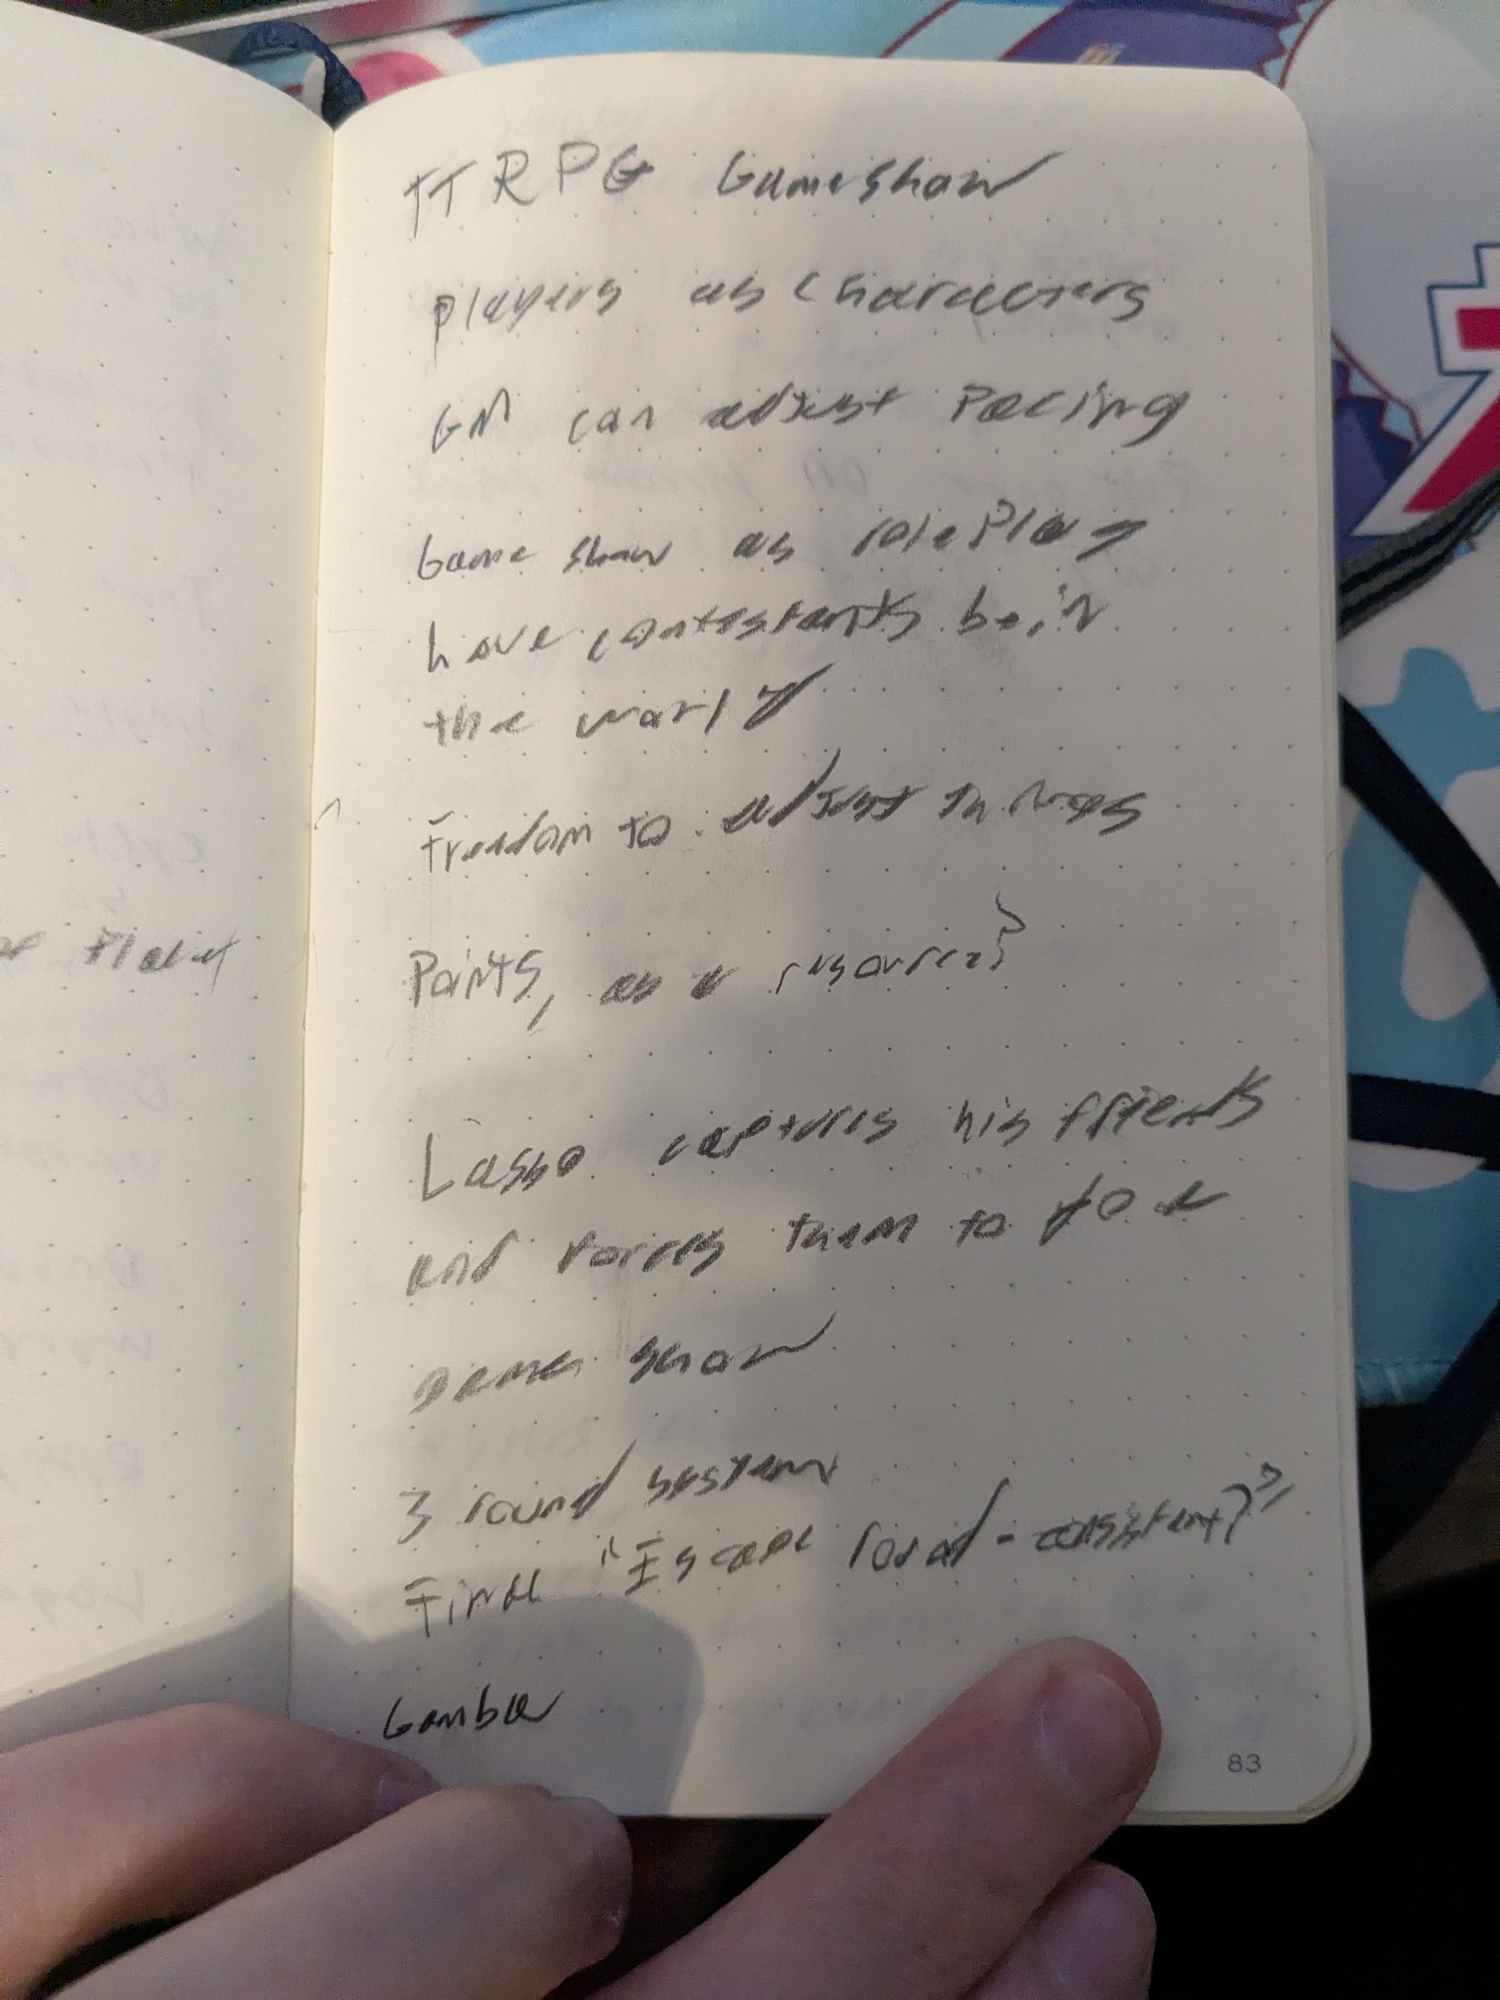 TTRPG Gameshow
players as characters
GM can adjust Pacing
Game show as roleplay
have contestants be in
the world
Freedom to adjust things
Points, as a resource?
Lasso captures his friends
and forces them to do a
game show
3 round system
Final "Escape round - consistent?"
Gamble
83